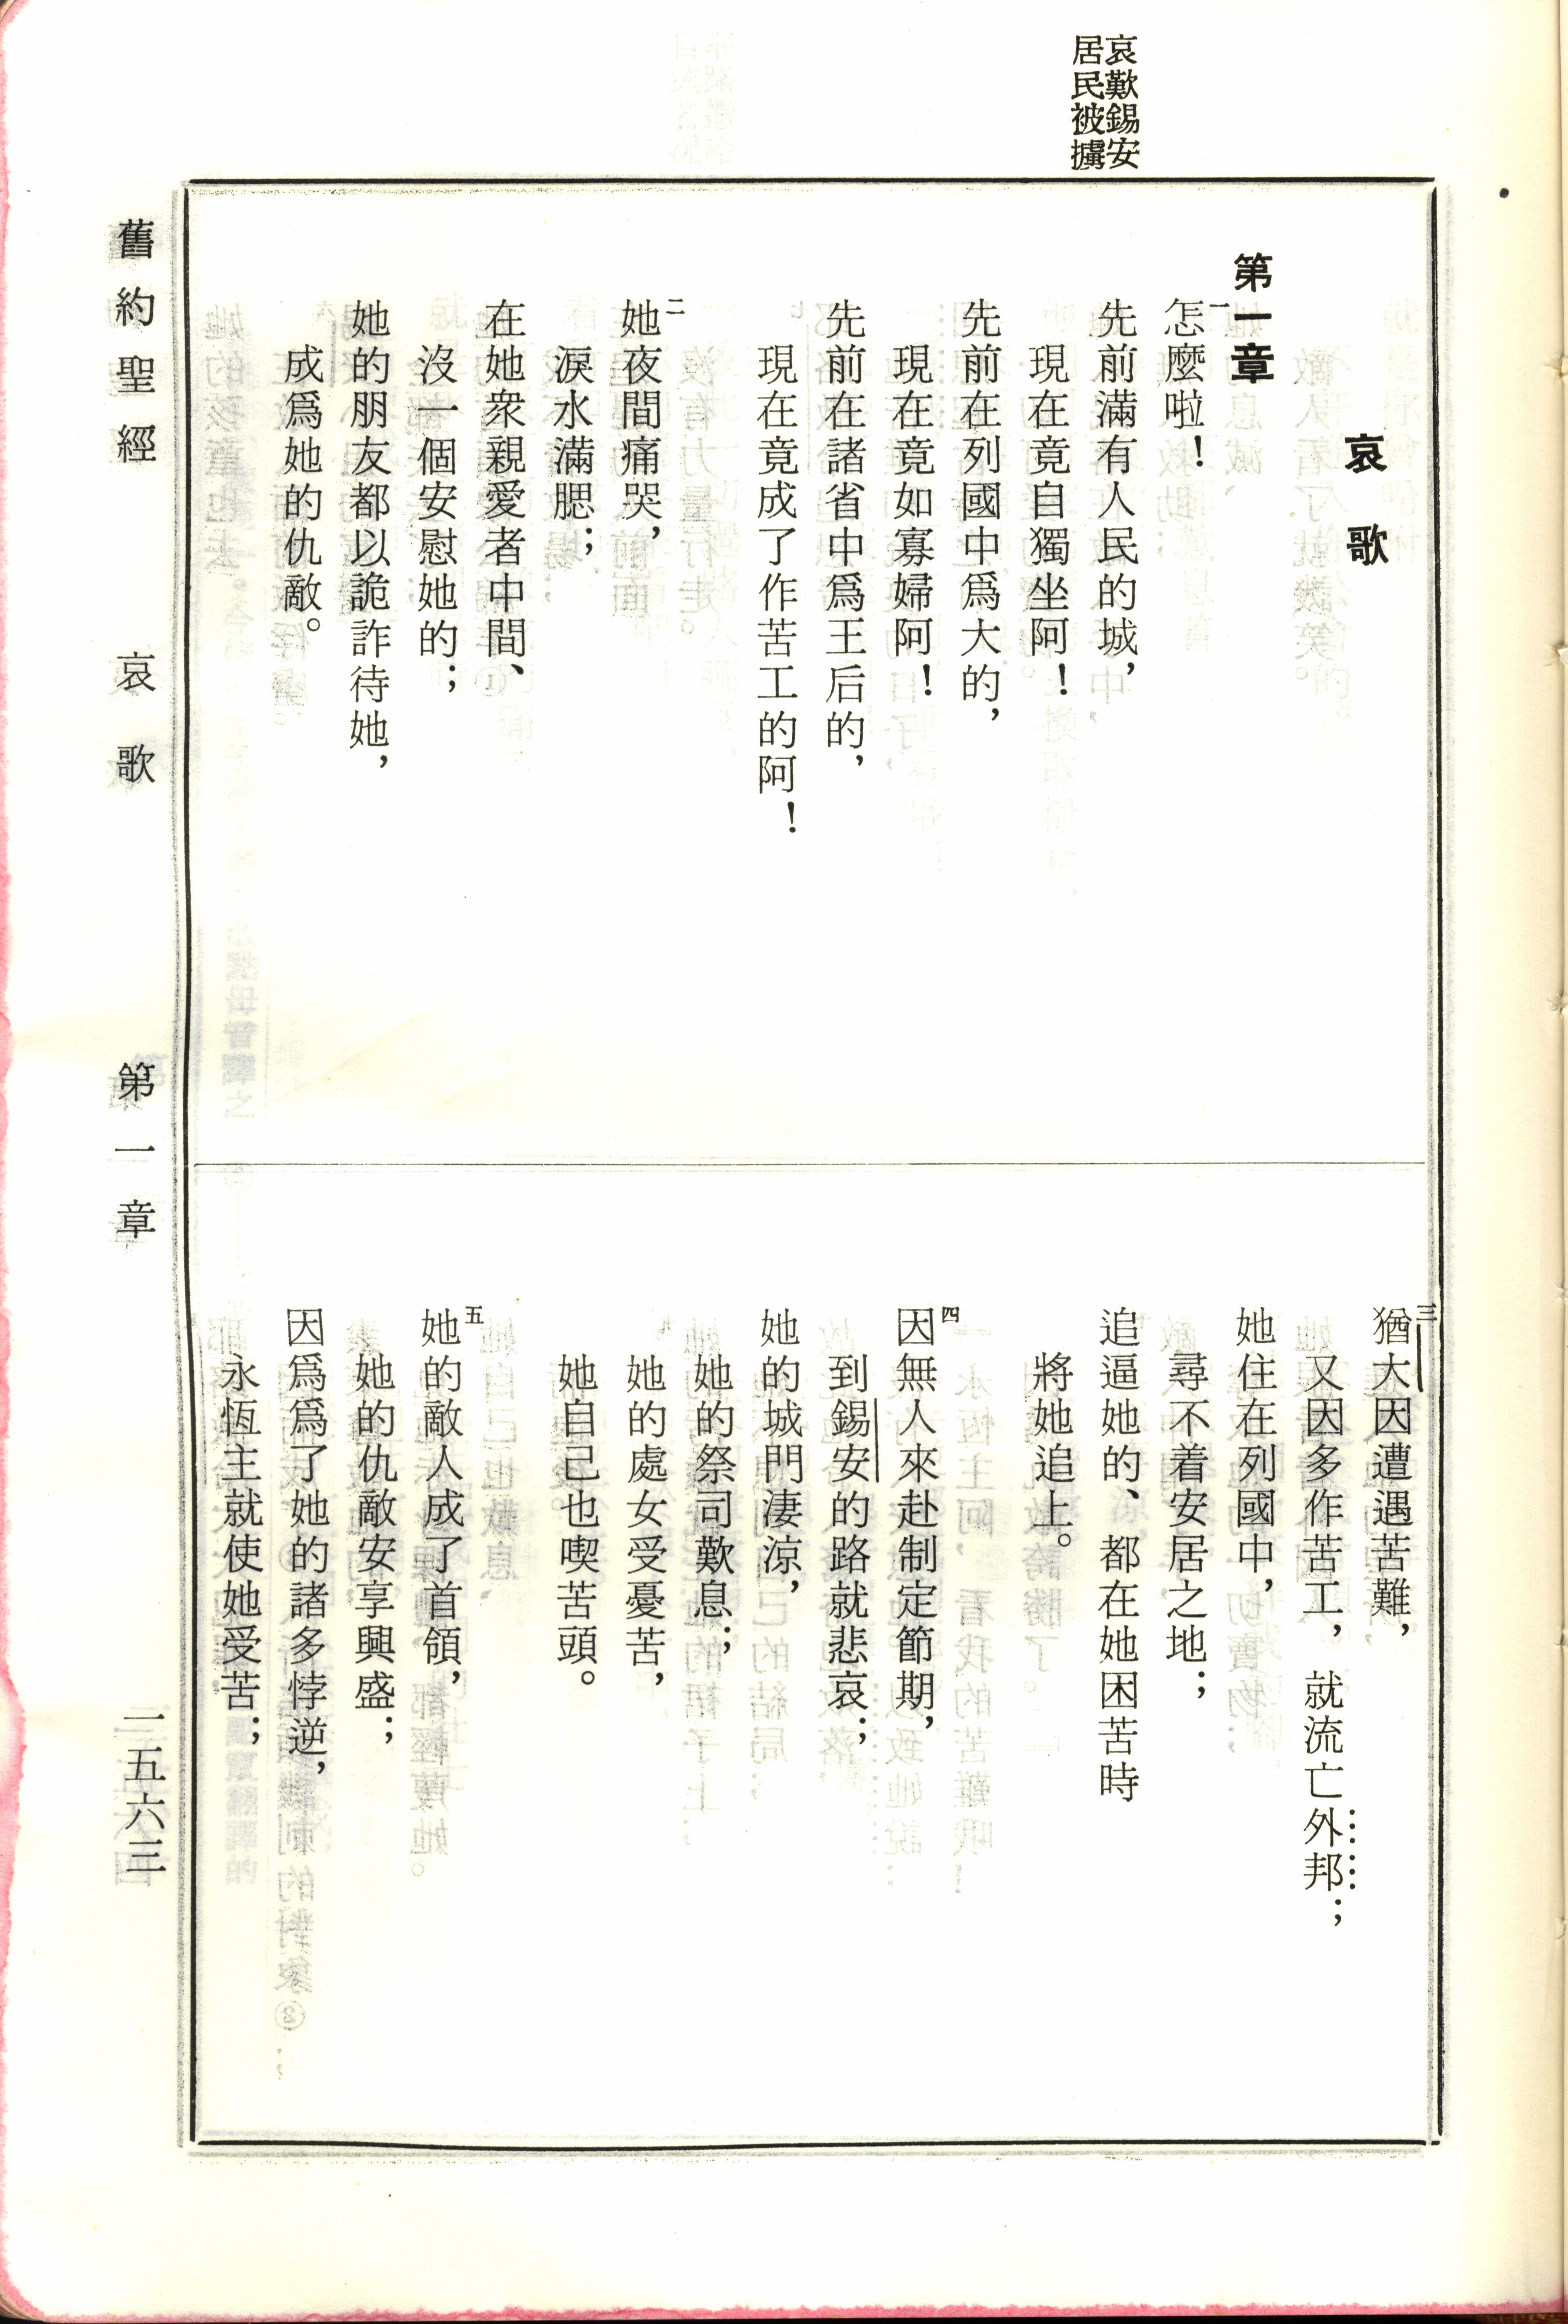 哀歎錫安
居民被擄
哀歌
第一章
一怎麼啦！
先前滿有人民的城，
現在竟自獨坐阿！
先前在列國中爲大的，
現在竟如寡婦阿！
先前在諸省中爲王后的，
現在竟成了作苦工的阿！
二她夜間痛哭，
淚水滿腮；
在她衆親愛者中間、
沒一個安慰她的；
她的朋友都以詭詐待她，
成爲她的仇敵。
三猶大因遭遇苦難，
又因多作苦工，就流亡外邦；
她住在列國中，
尋不着安居之地；
追逼她的、都在她困苦時
將她追上。
四因無人來赴制定節期，
到錫安的路就悲哀；
她的城門淒涼，
她的祭司歎息；
她的處女受憂苦，
她自己也喫苦頭。
五她的敵人成了首領，
她的仇敵安享興盛；
因爲爲了她的諸多悖逆，
永恆主就使她受苦；
舊約聖經 哀歌 第一章 一五六三